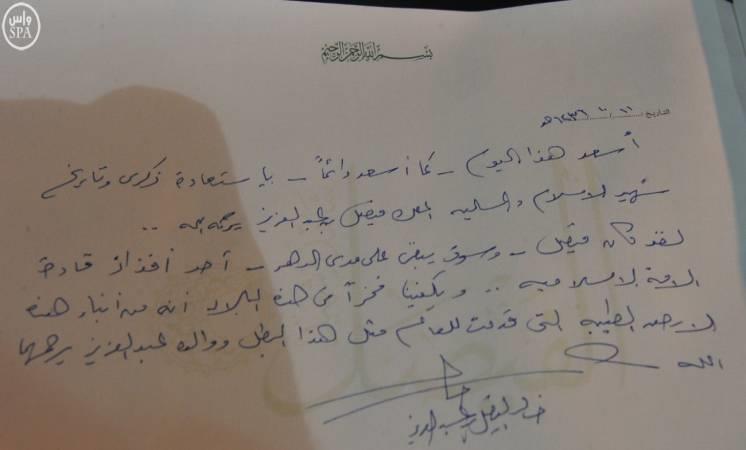 واس
SPA
بسم الله الرحمن الرحيم
التاريخ: ١١ / ٦ / ١٤٣٦هـ
أسعد هذا اليوم – كما أسعد دائماً – باستعادة ذكرى وتاريخ
شهيد الإسلام والسلام الملك فيصل بن عبدالعزيز يرحمه الله ..
لقد كان فيصل – وسوف يبقى على مدى الدهر – أحد أفذاذ قادة
الأمة الإسلامية .. ويكفينا فخراً في هذه البلاد أنه من أبناء هذه
الأرض الطيبة التي قدمت للعالم مثل هذا البطل ووالده عبدالعزيز يرحمهما
الله
خالد الفيصل بن عبدالعزيز